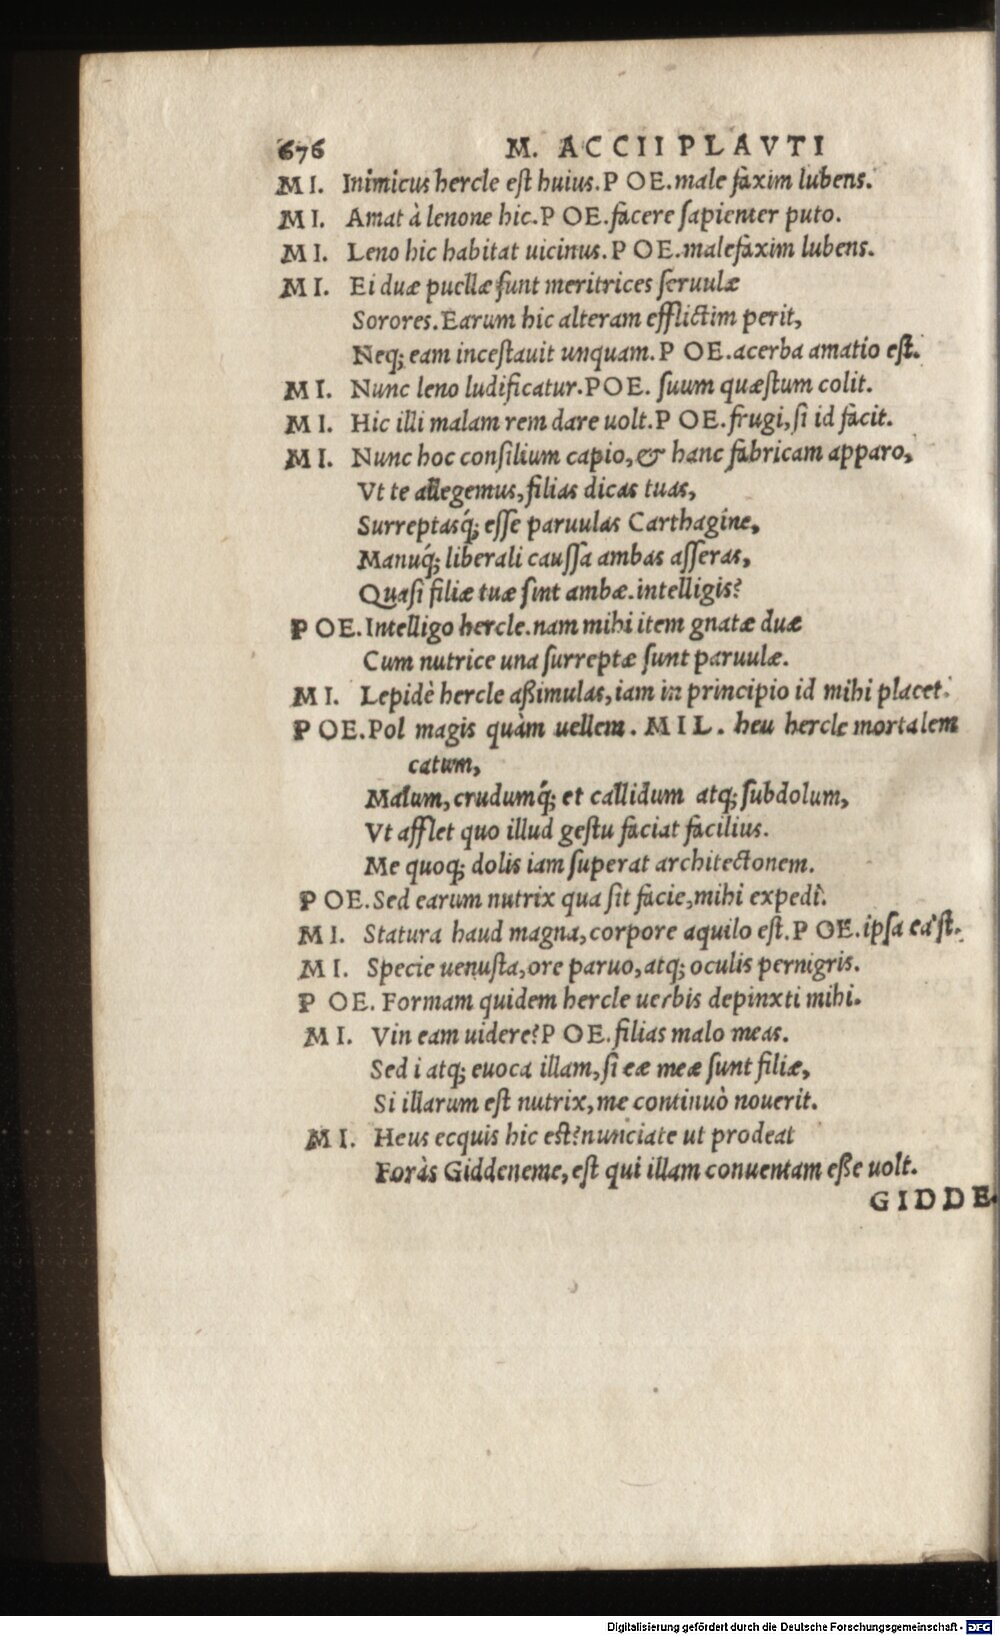 676 M. ACCII PLAVTI
MI. Inimicus hercle eſt huius. POE. male faxim lubens.
MI. Amat à lenone hic. POE. facere ſapienter puto.
MI. Leno hic habitat uicinus. POE. malefaxim lubens.
MI. Ei duæ puellæ ſunt meritrices ſeruulæ
Sorores. Earum hic alteram efflictim perit,
Neq; eam inceſtauit unquam. POE. acerba amatio eſt.
MI. Nunc leno ludificatur. POE. ſuum quæſtum colit.
MI. Hic illi malam rem dare uolt. POE. frugi, ſi id facit.
MI. Nunc hoc conſilium capio, & hanc fabricam apparo,
Vt te allegemus, filias dicas tuas,
Surreptasq́; eſſe paruulas Carthagine,
Manuq́; liberali cauſſa ambas aſſeras,
Quaſi filiæ tuæ ſint ambæ. intelligis?
POE. Intelligo hercle. nam mihi item gnatæ duæ
Cum nutrice una ſurreptæ ſunt paruulæ.
MI. Lepidè hercle aßimulas, iam in principio id mihi placet.
POE. Pol magis quàm uellem. MIL. heu hercle mortalem
catum,
Malum, crudumq́; et callidum atq; ſubdolum,
Vt afflet quo illud geſtu faciat facilius.
Me quoq; dolis iam ſuperat architectonem.
POE. Sed earum nutrix qua ſit facie, mihi expedi.
MI. Statura haud magna, corpore aquilo eſt. POE. ipſa ea'ſt.
MI. Specie uenuſta, ore paruo, atq; oculis pernigris.
POE. Formam quidem hercle uerbis depinxti mihi.
MI. Vin eam uidere? POE. filias malo meas.
Sed i atq; euoca illam, ſi eæ meæ ſunt filiæ,
Si illarum eſt nutrix, me continuò nouerit.
MI. Heus ecquis hic eſt? nunciate ut prodeat
Foràs Giddeneme, eſt qui illam conuentam eße uolt.
GIDDE-
Digitalisierung gefördert durch die Deutsche Forschungsgemeinschaft - DFG